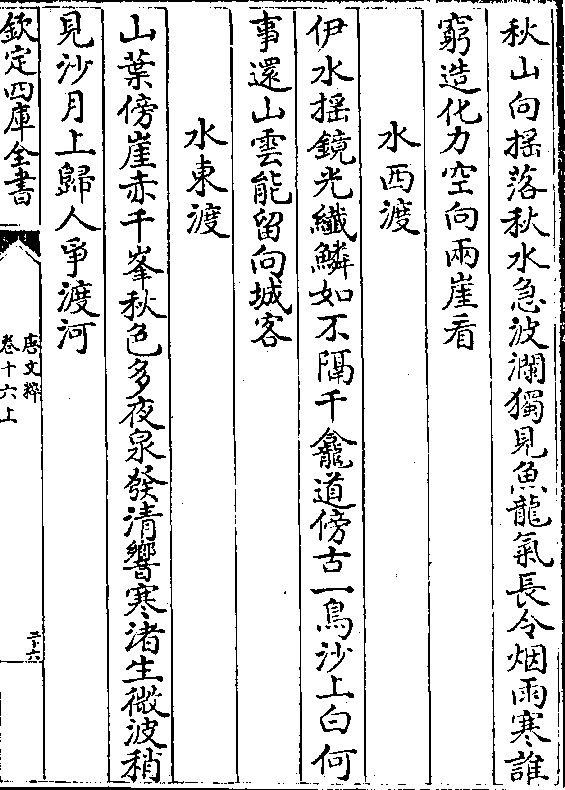 秋山向揺落秋水急波瀾獨見魚龍氣長令烟雨寒誰
窮造化力空向兩崖看
水西渡
伊水揺鏡光纖鱗如不隔千龕道傍古一鳥沙上白何
事還山雲能留向城客
水東渡
山葉傍崖赤千峯秋色多夜泉發清響寒渚生微波稍
見沙月上歸人爭渡河
欽定四庫全書
唐文粹
卷十六上
二十六